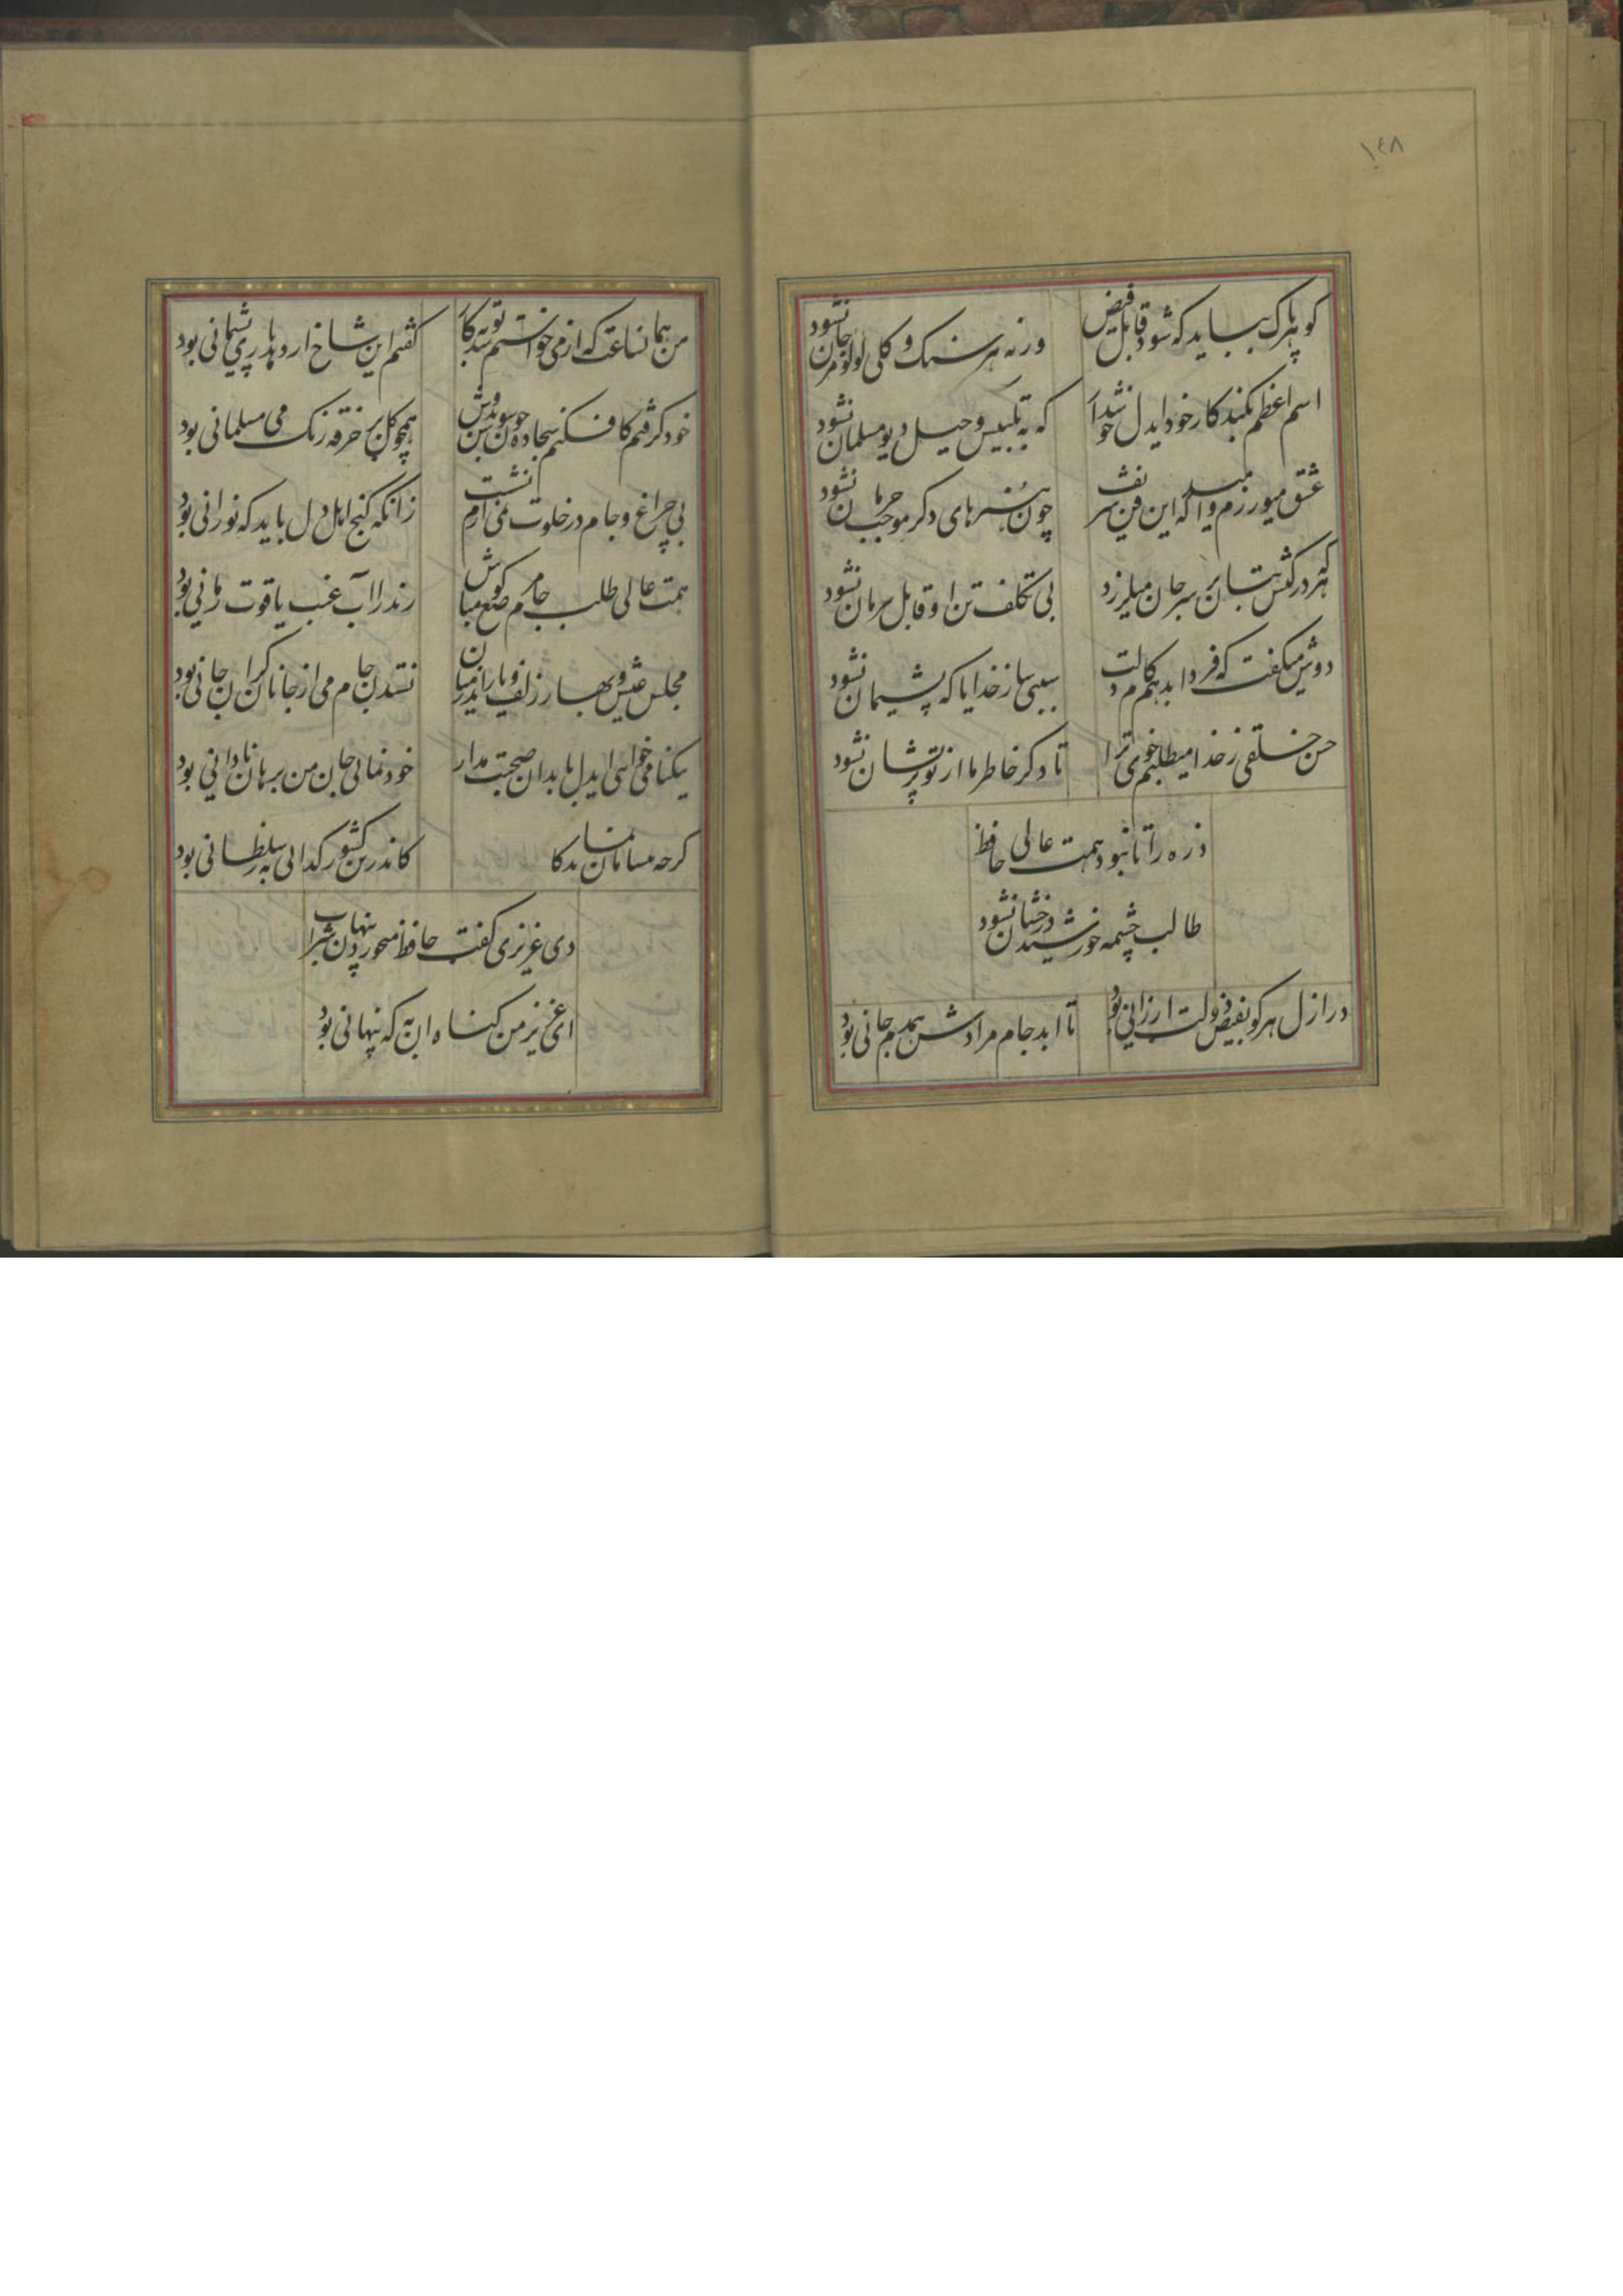 ١٤٨
کوهر پاک بباید که شود قابل فیض
ورنه هر سنک و کلی لولو و مرجان نشود
اسم اعظم بکند کار خود ایدل خوش
که به تلبیس و حیل دیو مسلمان نشود
عشق میورزم و امید که این فن شریف
چون هنرهای دکر موجب حرمان نشود
هر که در کش بتان بر سر جان میلرزد
بی تکلف تن او قابل حرمان نشود
دوش میکفت که فردا بدهم کام دلت
سببی ساز خدایا که پشیمان نشود
حسن خلقی ز خدا میطلبم خوی ترا
تا دکر خاطر ما از تو پریشان نشود
ذره را تا نبود همت عالی حافظ
طالب چشمه خورشید درخشان نشود
در ازل هر کو بفیض دولت ارزانی بود
تا ابد جام مرادش همدم جانی بود
من همان ساعت که از می خواستم شد توبه کار
کفتم این شاخ ار دهد باری پشیمانی بود
خود کرفتم کافکنم سجاده چون سوسن بدوش
همچو کل بر خرقه رنک می مسلمانی بود
بی چراغ و جام در خلوت نمی آرم نشست
زانکه کنج اهل دل باید که نورانی بود
همت عالی طلب جام مرصع کو مباش
رند را آب عنب یاقوت رمانی بود
مجلس عیش و بهار و زلف یار اندر میان
نستدن جام می از جانان کران جانی بود
نیکنامی خواهی ایدل با بدان صحبت مدار
خودنمائی جان من برهان نادانی بود
کرچه بیسامان نماید کار
کاندرین کشور کدائی به ز سلطانی بود
دی عزیزی کفت حافظ میخورد پنهان شراب
ای عزیز من کناه آن به که پنهانی بود